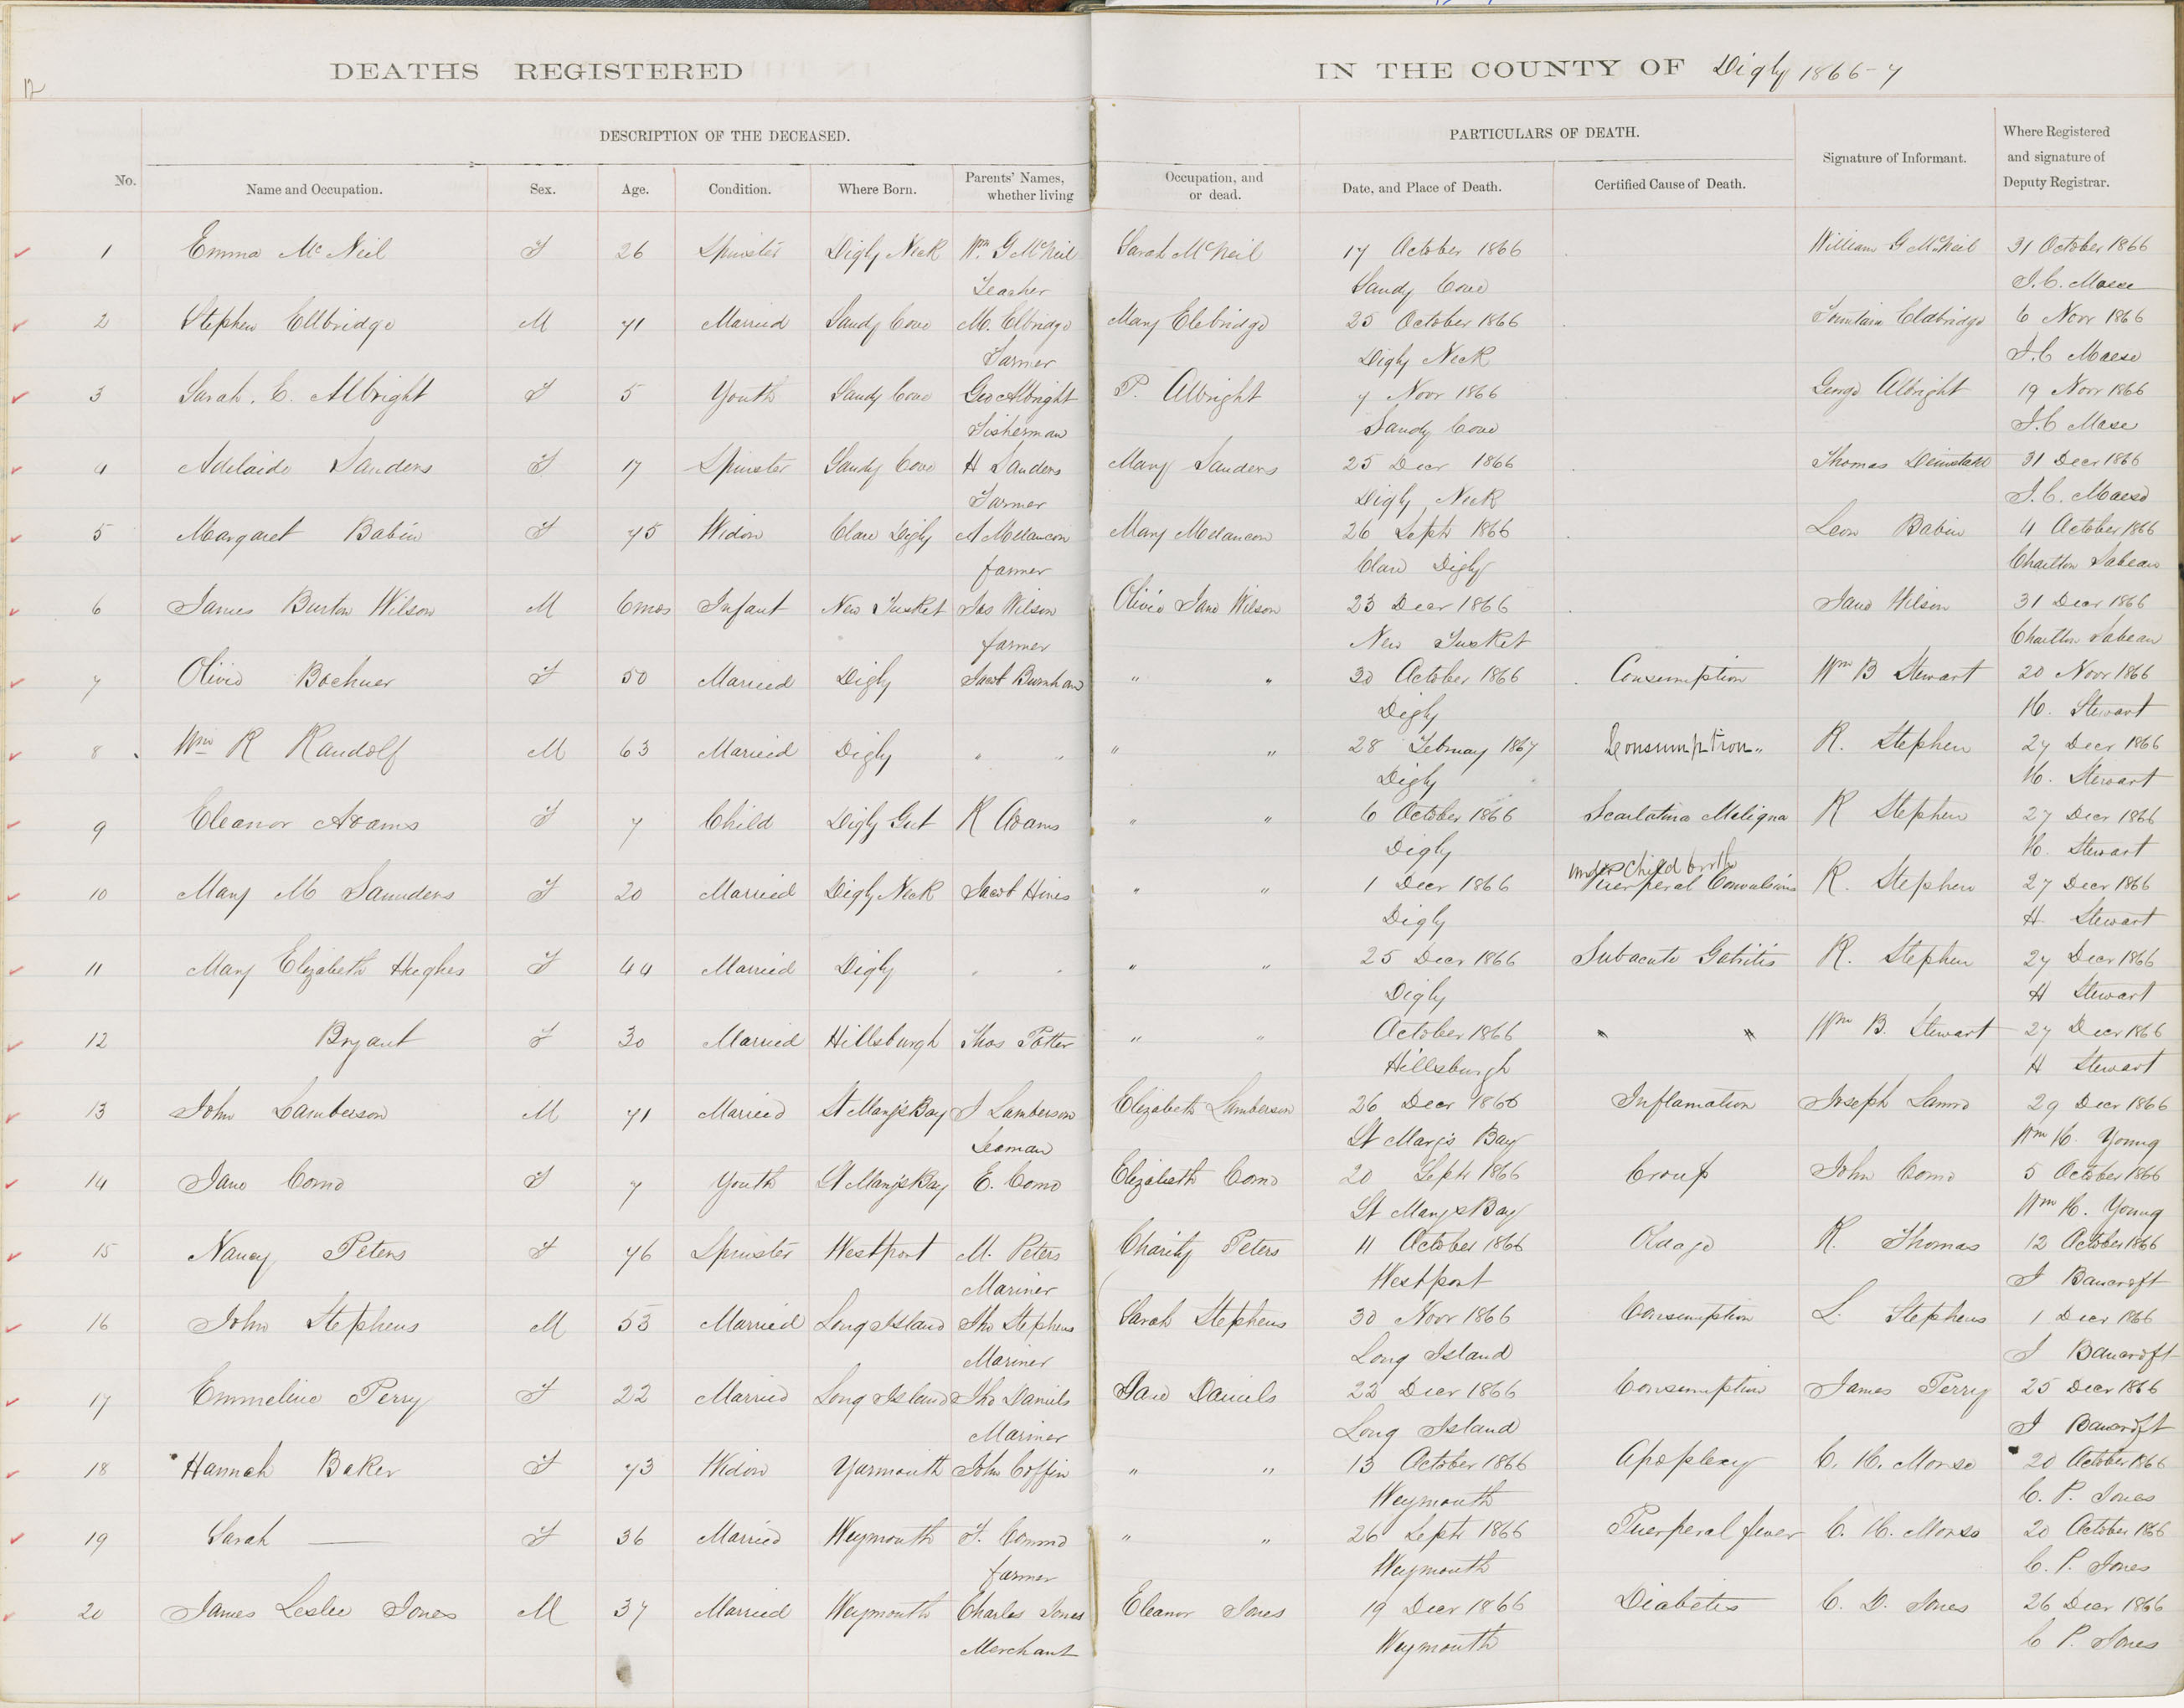 12
DEATHS REGISTERED IN THE COUNTY OF Digby 1866-7
DESCRIPTION OF THE DECEASED. PARTICULARS OF DEATH.
No. Name and Occupation. Sex. Age. Condition. Where Born. Parents' Names, whether living Occupation, and or dead. Date, and Place of Death. Certified Cause of Death. Signature of Informant. Where Registered and signature of Deputy Registrar.
1 Emma McNeil F 26 Spinster Digby Neck Wm G McNeil Sarah McNeil 17 October 1866 William G McNeil 31 October 1866
Teacher Sandy Cove J. C. Morse
2 Stephen Elbridge M 71 Married Sandy Cove M. Elbridge Mary Elebridge 25 October 1866 Fountain Eldbridge 6 Novr 1866
Farmer Digby Neck J. C Morse
3 Sarah. C. Albright F 5 Youth Sandy Cove Geo Albright P. Albright 7 Novr 1866 George Albright 19 Novr 1866
Fisherman Sandy Cove J. C Morse
4 Adelaide Sanders F 17 Spinster Sandy Cove H Sanders Mary Sanders 25 Decr 1866 Thomas 31 Decr 1866
Farmer Digby Neck J. C. Morse
5 Margaret Babin F 75 Widow Clare Digby A Melancon Mary Melancon 26 Septr 1866 Leon Babin 4 October 1866
farmer Clare Digby Charlton Sabean
6 James Burton Wilson M 6mos Infant New Tusket Jas Wilson Olivia Jane Wilson 23 Decr 1866 Jane Wilson 31 Decr 1866
farmer New Tusket Charlton Sabean
7 Olivia Boehner F 50 Married Digby Jacob Burnham " " 30 October 1866 Consumption Wm B Stewart 20 Novr 1866
Digby H. Stewart
8 Wm R Randolf M 63 Married Digby " " " " 28 Febuary 1867 Consumption R. Stephen 27 Decr 1866
Digby H. Stewart
9 Eleanor Adams F 7 Child Digby Gut R Adams " " 6 October 1866 Scarlatina Maligna R Stephen 27 Decr 1866
Digby H. Stewart
under Child birth
10 Mary M Saunders F 20 Married Digby Neck Jacob Hines " " 1 Decr 1866 Puerperal Convulsions R. Stephen 27 Decr 1866
Digby H Stewart
11 Mary Elizabeth Hughes F 44 Married Digby " " " " 25 Decr 1866 Subacute Gatritis R. Stephen 27 Decr 1866
Digby H Stewart
12 Bryant F 30 Married Hillsburgh Thos Potter " " October 1866 " " Wm B. Stewart 27 Decr 1866
Hillsburgh H Stewart
13 John Lamberson M 71 Married St Mary's Bay J Lamberson Elizabeth Lamberson 26 Decr 1866 Inflamation Joseph 29 Decr 1866
Seaman St Mary's Bay Wm H. Young
14 Jane Como F 7 Youth St Mary's Bay E. Como Elizabeth Como 20 Septr 1866 Croup John Como 5 October 1866
St Mary's Bay Wm H. Young
15 Nancy Peters F 76 Spinster Westport M. Peters Charity Peters 11 October 1866 Old age R. Thomas 12 October 1866
Mariner Westport J Bancroft
16 John Stephens M 53 Married Long Island Jno Stephens Sarah Stephens 30 Novr 1866 Consumption L. Stephens 1 Decr 1866
Mariner Long Island J Bancroft
17 Emmeline Perry F 22 Married Long Island Jno Daniels Jane Daniels 22 Decr 1866 Consumption James Perry 25 Decr 1866
Mariner Long Island J Bancroft
18 Hannah Baker F 73 Widow Yarmouth John Coffin " " 13 October 1866 Apoplexy C. H. Morse 20 October 1866
Weymouth C. P. Jones
19 Sarah — F 36 Married Weymouth F. Commo " " 26 Septr 1866 Puerperal fever C. H. Morse 20 October 1866
farmer Weymouth C. P. Jones
20 James Leslie Jones M 37 Married Weymouth Charles Jones Eleanor Jones 19 Decr 1866 Diabetis C. D. Jones 26 Decr 1866
Merchant Weymouth C P. Jones